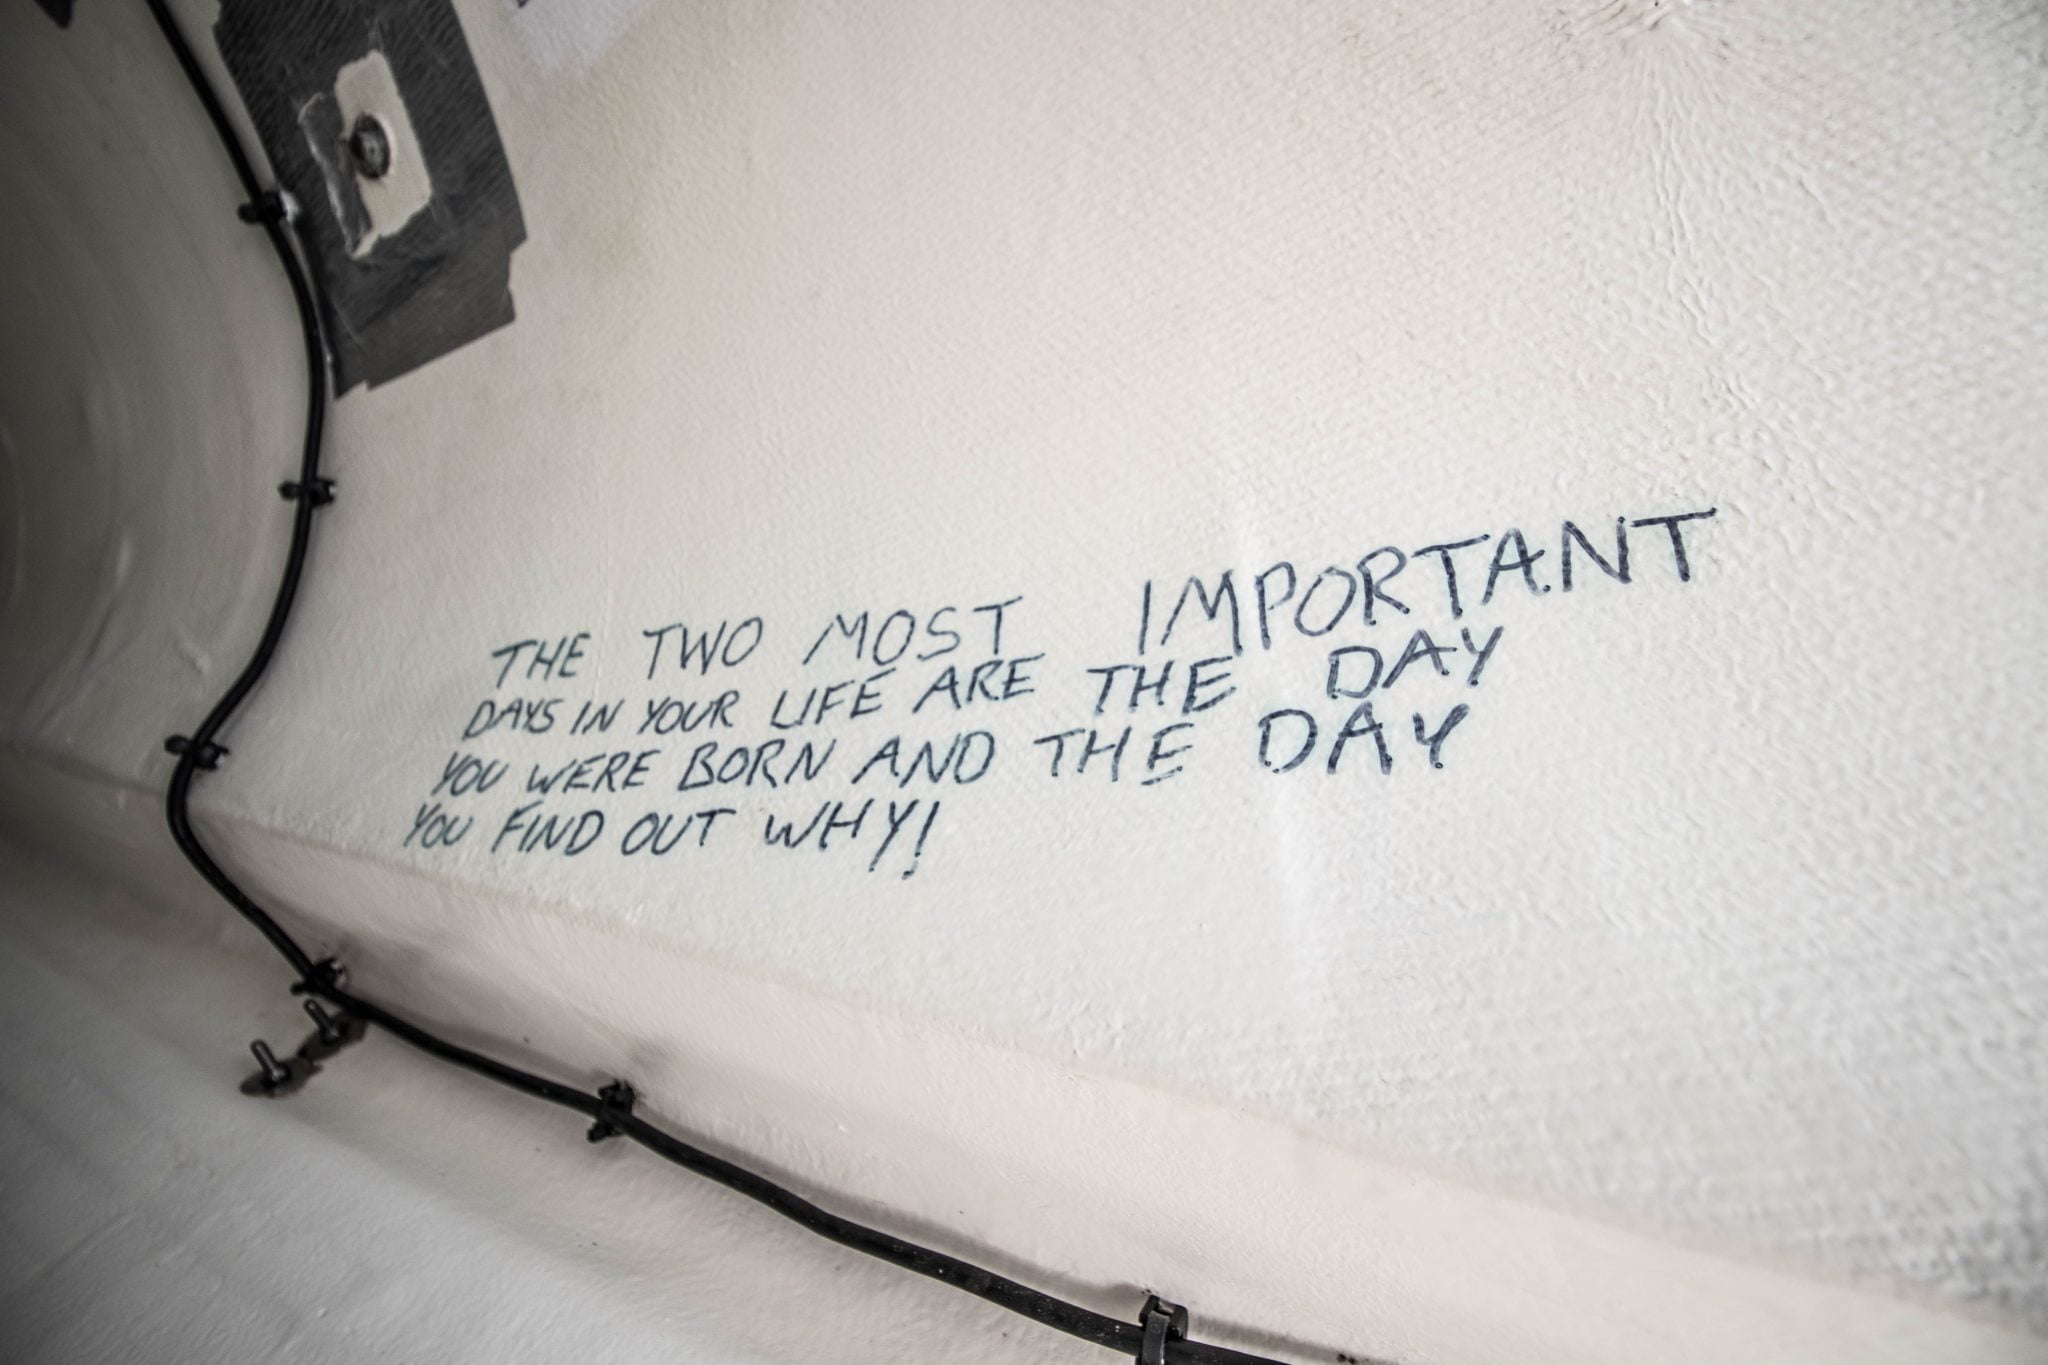 THE TWO MOST IMPORTANT
DAYS IN YOUR LIFE ARE THE DAY
YOU WERE BORN AND THE DAY
YOU FIND OUT WHY!